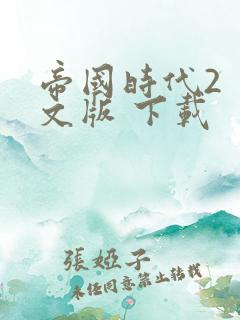 帝國時代2
文版 下載
張婭子
未經同意禁止轉載